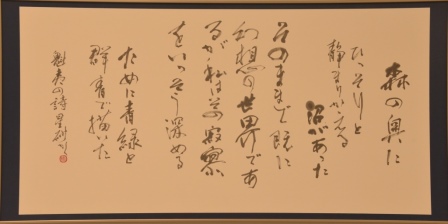 森の奥に
ひっそりと
静まりかえる
沼があった
そのままで既に
幻想の世界であ
るが私はその寂
をいっそう深める
ために青緑と
群青で描いた
魁夷の詩